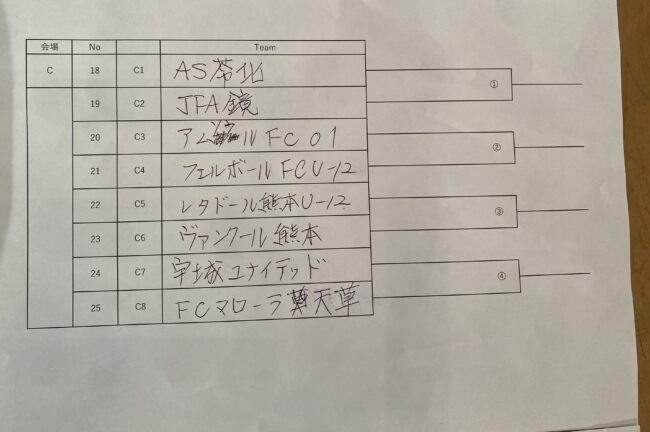 会場 No Team
C 18 C1 AS
① 
19 C2 JFA鏡
20 C3 アムゾールFC 01
②
21 C4 フェルボールFCU-12
22 C5 レタドール熊本U-12
③
23 C6 ヴァンクール熊本
24 C7 宇城ユナイテッド
④
25 C8 FCマローラ 天草